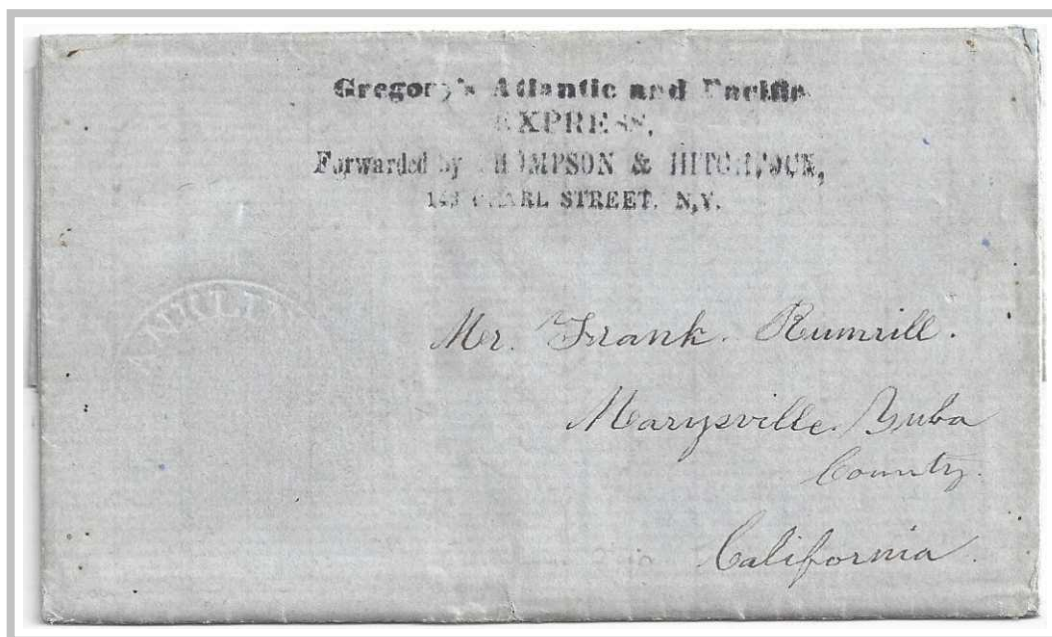 Gregory's Atlantic and Pacific
EXPRESS,
Forwarded by THOMPSON & HITCHCOCK,
149 PEARL STREET, N,Y.
Mr. Frank. Rumrill.
Marysville. Yuba
County.
California.